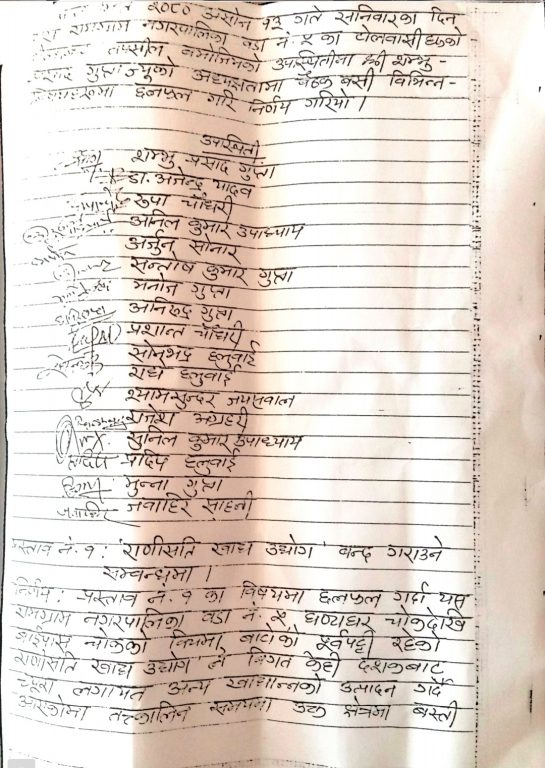 २०८० असोज १३ गते सनिवारका दिन
रामग्राम नगरपालिका वडा नं. ५ का टोलवासीहरुको
तपसील बमोजिमको उपस्थितीमा श्री शम्भु-
प्रसाद गुप्ताज्यूको अध्यक्षतामा बैठक बसी विभिन्न-
विषयहरुमा छलफल गरि निर्णय गरियो।
उपस्थिती
शम्भु प्रसाद गुप्ता
डा. अजेन्द्र यादव
रुपा चौधरी
अनिल कुमार उपाध्याय
अर्जुन सोनार
सन्तोष कुमार गुप्ता
मनोज गुप्ता
अनिरुद्र गुप्ता
प्रशान्त चौधरी
सोनभद्र हलुवाई
राधे हलुवाई
श्यामसुन्दर जयसवाल
राजेश अग्रहरी
सुनिल कुमार उपाध्याय
प्रदिप हलुवाई
मुन्ना गुप्ता
जवाहिर साहनी
प्रस्ताव नं. १: 'राणीसति खाद्य उद्योग' बन्द गराउने
सम्बन्धमा।
निर्णय: प्रस्ताव नं. १ का विषयमा छलफल गर्दा यस
रामग्राम नगरपालिका वडा नं. ५ घण्टाघर चोकदेखि
बाईपास चोकको बाटोको पूर्वपट्टी रहेको
राणीसति खाद्य उद्योग ले विगत केही दशकबाट
च्यूरा लगायत अन्य खाद्यान्नको उत्पादन गर्दै
आएकोमा तत्कालिन समयमा उक्त क्षेत्रमा बस्ती